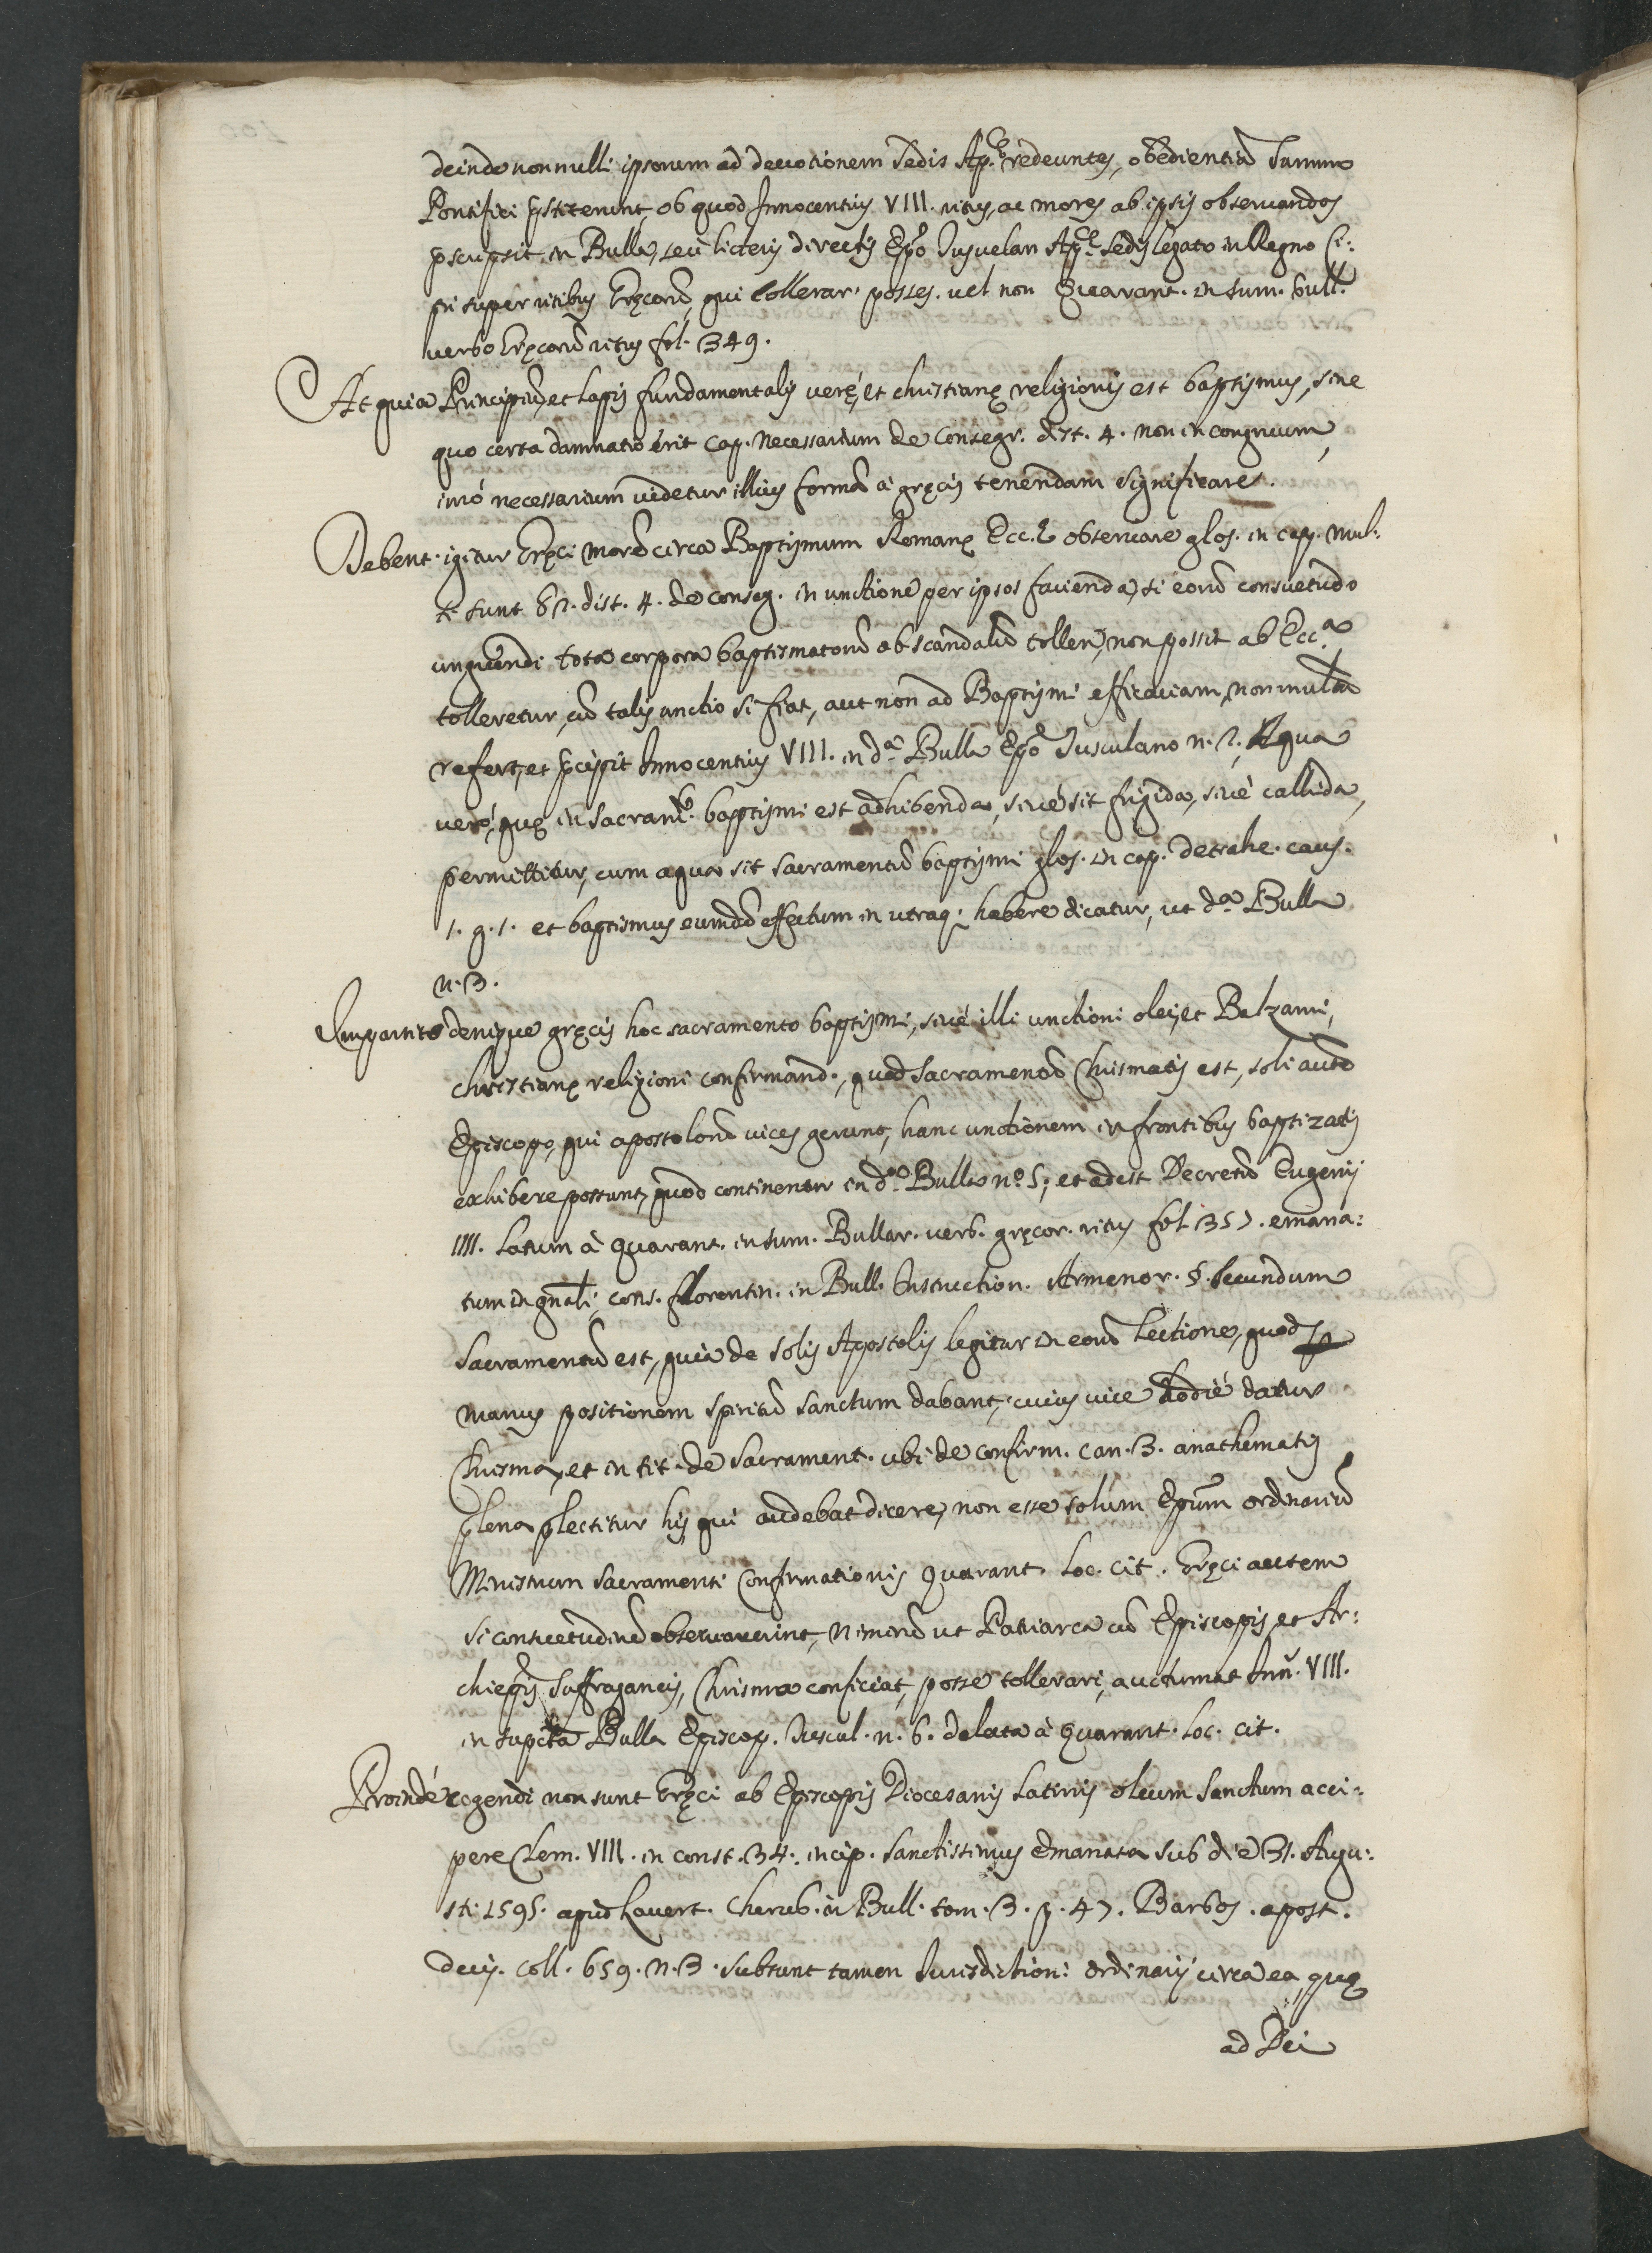 deinde nonnulli ipsorum ad deuotionem Sedis Ap.ce redeuntes, obedientiã Summo
Pontifici p̃stiterunt, ob quod Innocentius VIII. ritus, ac mores ab ipsis obseruandos
pscripsit in Bulla, seù licteris directis Epõ Tusculan Ap.ce Sedis legato in Regno Ci:
pri super ritibus Gręcorũ, qui tollerar. posses. uel non Quarant. in sum. bull.
uerbo Gręcorũ ritus fol. 349.
At quia Principiũ, et lapis fundamentalis uerę, et christianę religionis est baptismus, sine
quo certa damnatio erit cap. necessarium de Consegr. dist. 4. non incongruum,
imò necessarium uidetur illius formã à gręcis tenendam significare.
Debent igitur Gręci morẽ circa Baptismum Romanę Ecc.ę obseruare glos. in cap. mul:
ti sunt 82. dist. 4. de conseg. in unctione per ipsos facienda, si eorũ consuetudo
unguendi tota corpora baptismatorũ ob scandalũ tolleri, non possit ab Ecc.a
tolleretur, cũ talis unctio si fiat, aut non ad Baptismi efficaciam, non multũ
refert, et p̃cipit Innocentius VIII. in d.a Bulla Epõ Tusculano n. 2. Aqua
uerò, quę in sacram.to baptismi est adhibenda, siuè sit frigida, siuè callida,
permittitur, cum aqua sit sacramentũ baptismi glos. in cap. detrahe. caus.
1. q. 1. et baptismus eumdẽ effectum in utraq; habere dicatur, ut d.a Bulla
n. 3.
Impartito denique gręcis hoc sacramento baptismi, siuè illi unctioni olei, et Balzami,
christianę religioni confirmand., quod sacramentũ Chrismatis est, soli autẽ
Episcopo, qui apostolorũ uices gerunt, hanc unctionem in frontibus baptizatis
exhibere possunt, quod continentur in d.a Bulla n.o 5; et adest Decretũ Eugenij
IIII. latum à Quarant. in sum. Bullar. uerb. gręcor. ritus fol. 357. emana:
tum in gnãli, cons. florentin. in Bull. Instruction. Armenor. §. secundum
Sacramentũ est, quia de solis Apostolis legitur in eorũ lectione, quod p
manus positionem spiritũ sanctum dabant, cuius uice hodiè datur
Chrisma, et in tit. de sacrament. ubi de confirm. can. 3. anathematis
plena plectitur his qui audebat dicere, non esse solùm Epũm ordinariũ
Ministrum sacramenti Confirmationis Quarant. loc. cit. Gręci autem
si consuetudinẽ obseruauerint, nimirũ ut Patriarca cũ Episcopis, et Ar:
chiepis suffraganeis, Chrisma conficiat, posse tollerari, auctumat Inn. VIII.
in supcta Bulla Episcop. Tuscul. n. 6. delata à Quarant. loc. cit.
Proindè cogendi non sunt Gręci ab Episcopis Diocesanis Latinis oleum sanctum acci:
pere Clem. VIII. in const. 34. incip. Sanctissimus emanata sub diè 31. Augu:
sti 1595. apud Lauert. Cherub. in Bull. tom. 3. p. 47. Barbos. apost.
decis. coll. 659. n. 3. subsunt tamen Iurisdictioni ordinarij circa ea, quę
ad Dei